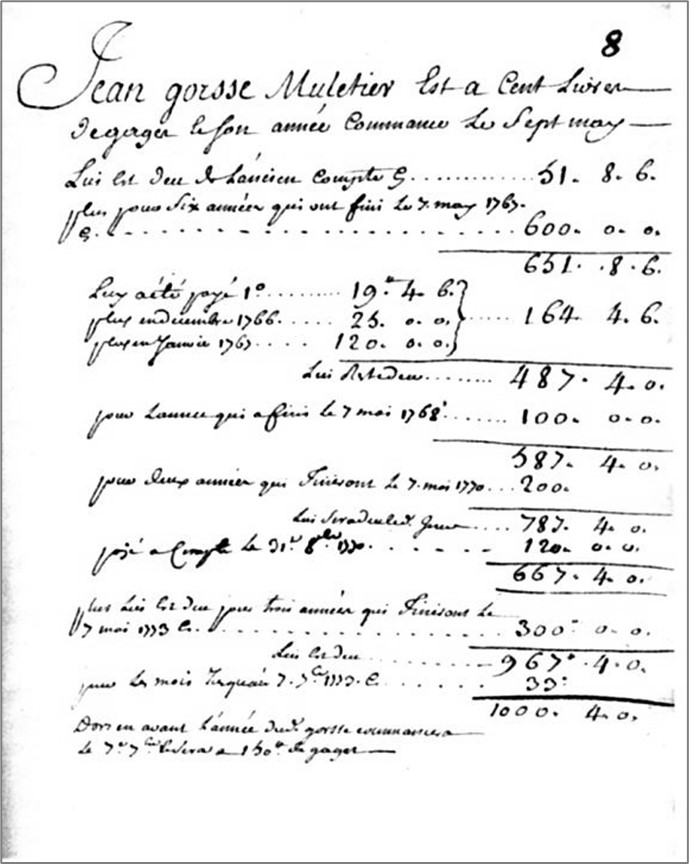 8
Jean gorsse Muletier Est a Cent Livres
de gages et son année Commance Le Sept may
Lui est deu de L'ancien Compte C. 51. 8. 6.
plus pour Six années qui ont fini Le 7. may 1767.
C. 600. 0. 0.
651. 8. 6.
Luy a été payé 1º 19. 4. 6.
plus en decembre 1766. 25. 0. 0. 164. 4. 6.
plus en Janvie 1767 120. 0. 0.
Lui Reste deu 487. 4. 0.
pour L'annee qui a finis le 7 mai 1768. 100. 0. 0.
587. 4. 0.
pour deux années qui Finiront Le 7. mai 1770 200.
Lui sera deu led. Jour 787. 4. 0.
payé a Compte Le 31. 8bre 1770. 120. 0. 0.
667. 4. 0.
plus Lui est deu pour trois années qui Finiront Le
7 mai 1773 C. 300. 0. 0.
Lui est deu 967. 4. 0.
pour Les mois Jusquau 7. 7bre 1773. C. 33.
1000. 4. 0.
Dors en avant L'année dud. gorsse commancera
Le 7e 7bre Et sera a 150. de gages